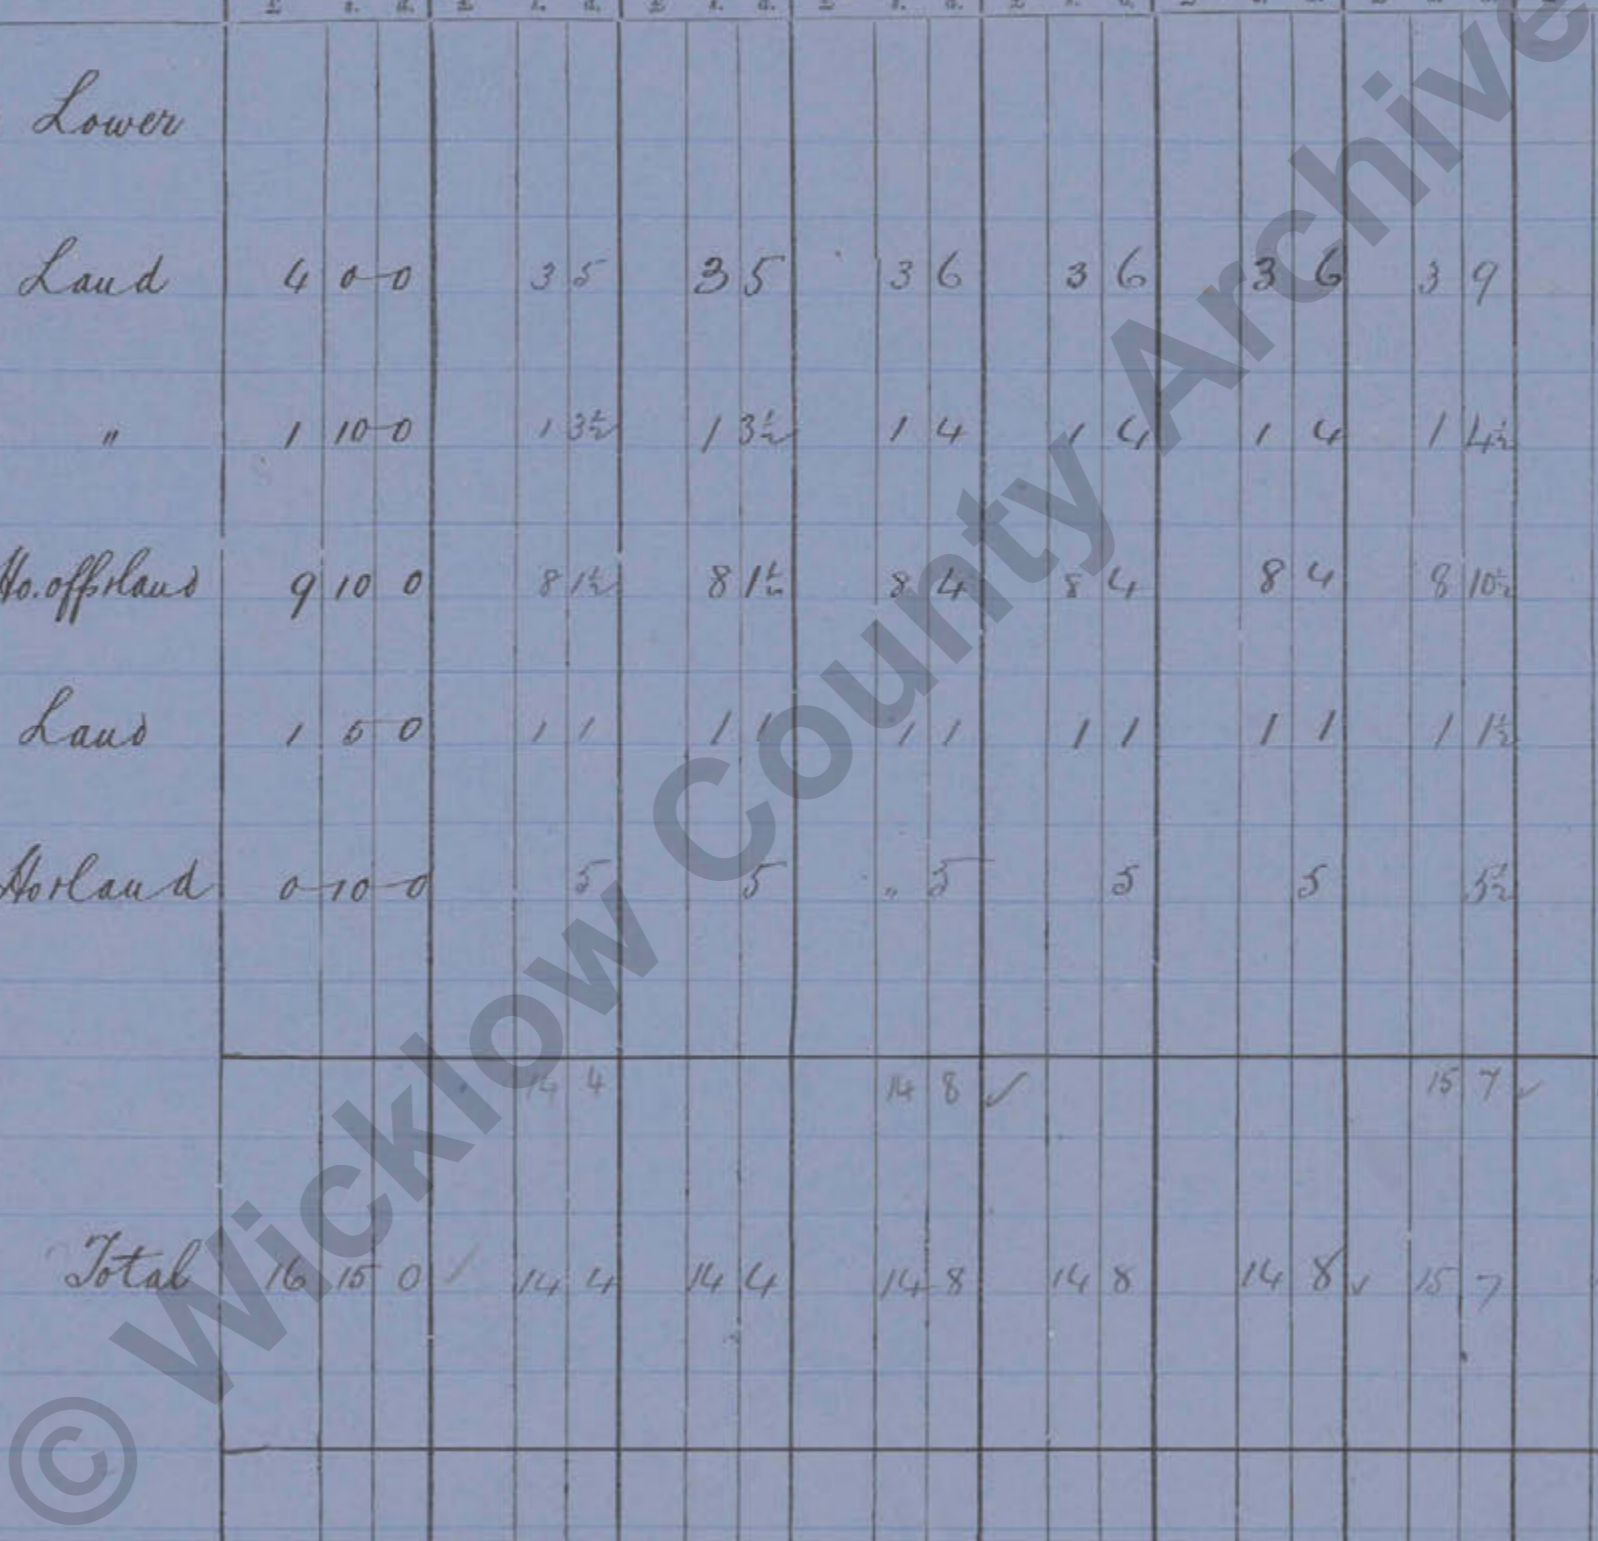 £ s. d. £ s. d. £ s. d. £ s. d. £ s. d. £ s. d.
Lower
Land 4 0 0 3 5 3 5 3 6 3 6 3 6 3 9
" 1 10 0 1 3½ 1 3½ 1 4 1 4 1 4 1 4½
Ho. offs & land 9 10 0 8 1½ 8 1½ 8 4 8 4 8 4 8 10½
Land 1 5 0 1 1 1 1 1 1 1 1 1 1 1 1½
Ho & land 0 10 0 5 5 " 5 5 5 5½
14 4 14 8 ✓ 15 7 ✓
Total 16 15 0 ✓ 14 4 14 4 14 8 14 8 14 8 ✓ 15 7
© Wicklow County Archive